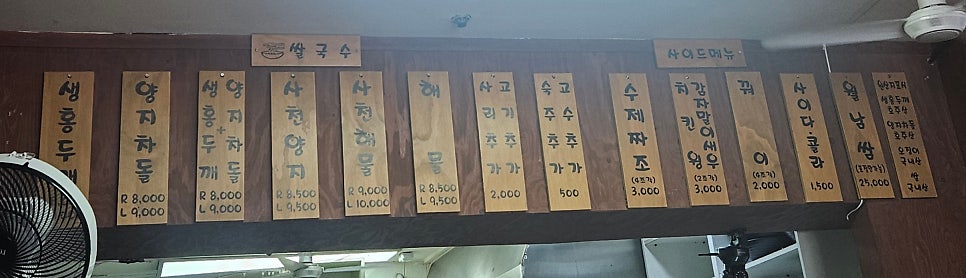 쌀국수
사이드메뉴
생홍두깨
양지차돌
R 8,000
L 9,000
양지차돌
+
생홍두깨
R 8,000
L 9,000
사천양지
R 8,500
L 9,500
사천해물
R 9,000
L 10,000
해물
R 8,500
L 9,500
고기추가
사리추가
2,000
고수추가
숙주추가
500
수제짜조
(4조각)
3,000
감자말이새우
치킨윙
(2조각)
3,000
꿔이
(4조각)
2,000
사이다.콜라
1,500
월남쌈
25,000
원산지표시
생홍두깨
호주산
양지차돌
호주산
오징어
국내산
쌀
국내산